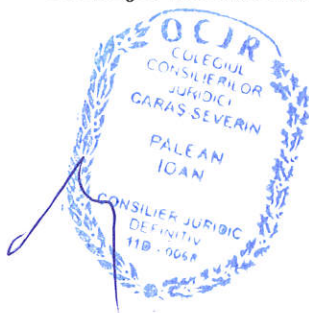 OCJR
COLEGIUL
CONSILIERILOR
JURIDICI
CARAȘ SEVERIN
PALEAN
IOAN
CONSILIER JURIDIC
DEFINITIV